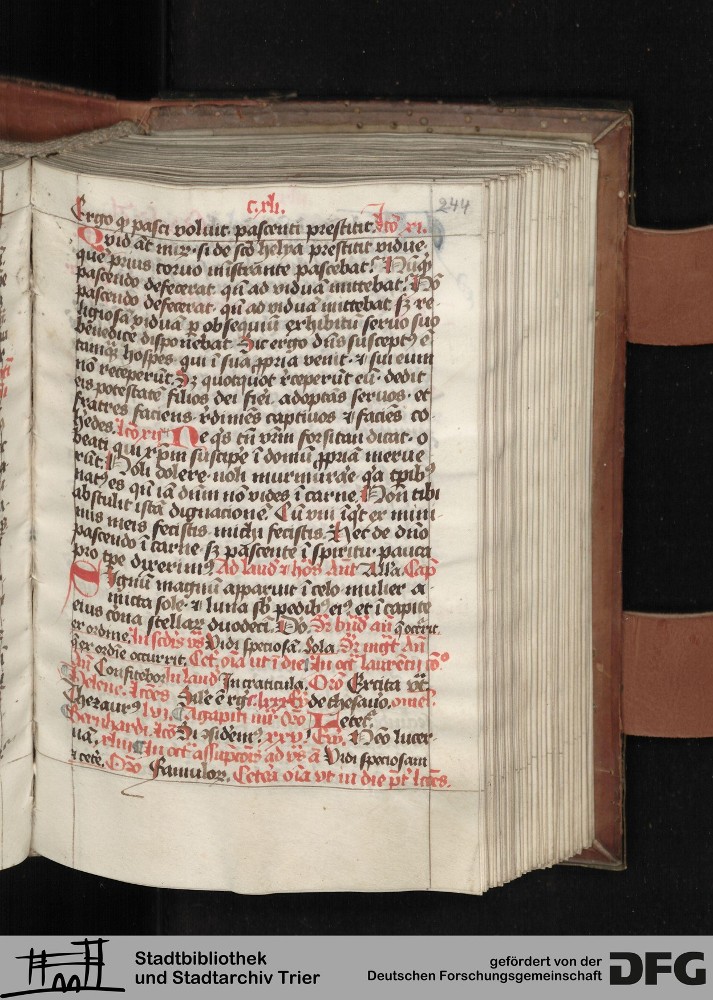 c. xli.
244
Ergo q̈ pasci voluit. pascenti prestitit. Lcō xi.
Quid aūt mirū. si de scō helya prestitit vidue.
que prius coruo ministrante pascebat. Nūqͥd
pascendo defecerat. qn̄ ad viduā mittebat. Nō
pascendo defecerat. qn̄ ad viduā mittebat. sꝫ re
ligiosā viduā ꝑ obsequiū exhibitū seruo suo
bn̄edicẽ disponebat. Sic ergo dn̄s susceptꝰ ē
tamqͣ hospes. qui ī sua ꝓpria venit. ⁊ sui eum
nō receperūt. Sꝫ quotquot receperūt eū. dedit
eis potestatē filios dei fieri. adoptās seruos. et
fratres faciens. redimēs captiuos ⁊ faciēs co
hedes. Lcō xij. Ne qͥs tn̄ vr̄m forsitan dicat. o
beati qui xp̄m suscipe ī domū ꝓpriā merue
rūt. Noli dolere. noli murmurare. qͥa tꝑibꝰ
natꝰ es qn̄ iā dūm nō vides ī carne. Non tibi
abstulit istā dignatione. Cū vni īqt ex mini
mis meis fecistis. michi fecistis. Hec de dn̄o
pascendo ī carne. sꝫ pascente ī spiritu. pauca
pro tꝑe dixerimꝰ. Ad laud ⁊ hōs Ant Alla. Cap
Signū magnū apparuit ī celo mulier a
micta sole. ⁊ luna sb̄ pedibꝰ eiꝰ. et ī capite
eius cōna stellarꝫ duodecī.
er ordine. In scd̄is vs̄ Vidi speciosā. sola.
er ordīe occurrit. Cet̄. oīa ut ī die. In oct̄ laurētij
Añ Confitebor In laud In craticula. Oro Excita
Helene. Lcōes Sile ē rg. lxxxv. de thesauro. omel.
Thezaurꝰ. lvi. Agapiti mr̄. Oro Letet.
Bernhardi. Lcō Si ꝯsident. xxv. Ero. Deo lucer
nā. xlviij. In oct̄ assūptōis ad vs̄ ā Vidi speciosam
⁊ cete. Oro Famulorꝫ. Cetera oīa vt in die pͭ Lcōes.
Stadtbibliothek
und Stadtarchiv Trier
gefördert von der
Deutschen Forschungsgemeinschaft
DFG